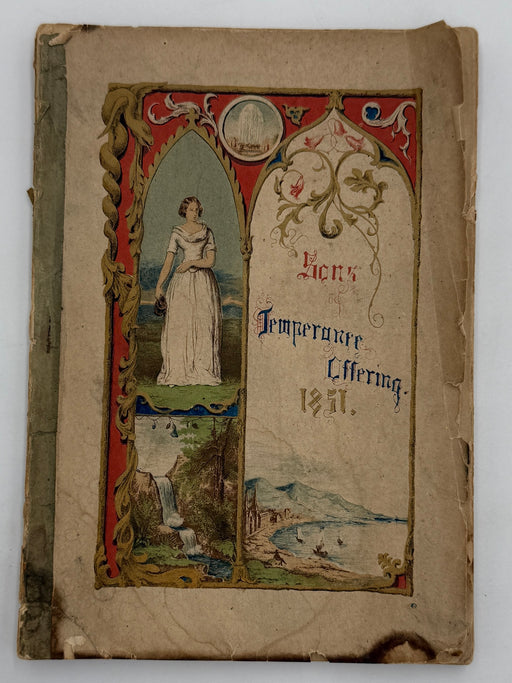 Sons
of
Temperance
Offering.
1851.